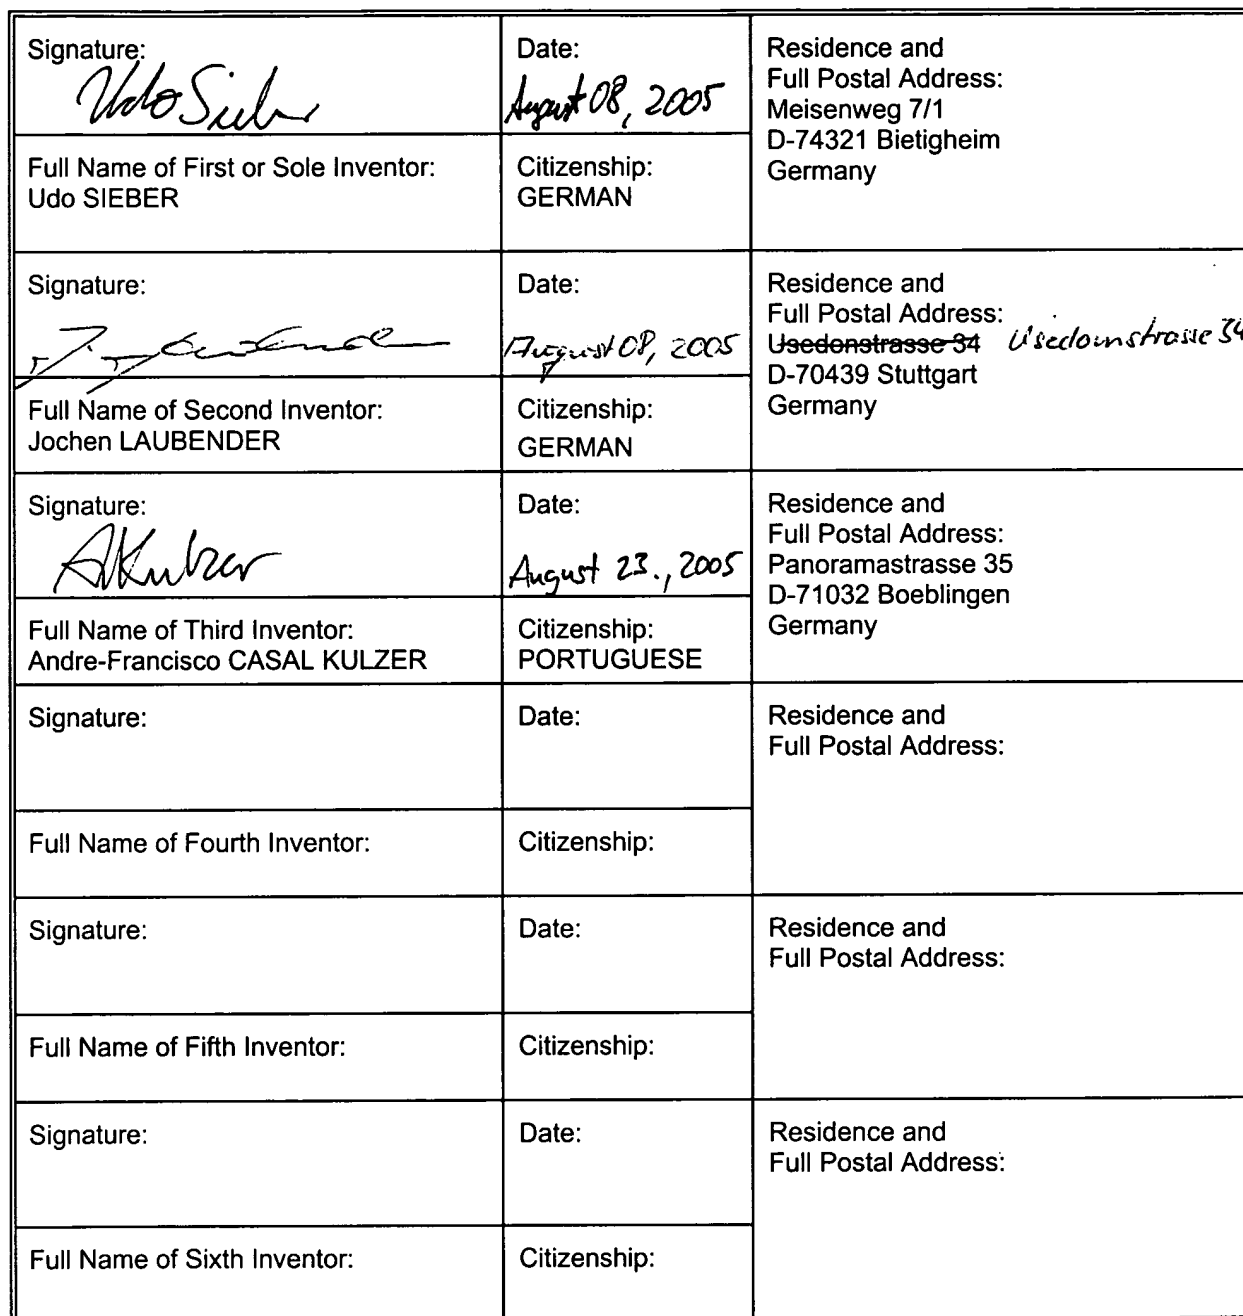 Signature:
Udo Sieber
Date:
August 08, 2005
Residence and
Full Postal Address:
Meisenweg 7/1
D-74321 Bietigheim
Germany
Full Name of First or Sole Inventor:
Udo SIEBER
Citizenship:
GERMAN
Signature:
Date:
August 08, 2005
Residence and
Full Postal Address:
Usedonstrasse 34 Usedomstrasse 34
D-70439 Stuttgart
Germany
Full Name of Second Inventor:
Jochen LAUBENDER
Citizenship:
GERMAN
Signature:
AKulzer
Date:
August 23., 2005
Residence and
Full Postal Address:
Panoramastrasse 35
D-71032 Boeblingen
Germany
Full Name of Third Inventor:
Andre-Francisco CASAL KULZER
Citizenship:
PORTUGUESE
Signature:
Date:
Residence and
Full Postal Address:
Full Name of Fourth Inventor:
Citizenship:
Signature:
Date:
Residence and
Full Postal Address:
Full Name of Fifth Inventor:
Citizenship:
Signature:
Date:
Residence and
Full Postal Address:
Full Name of Sixth Inventor:
Citizenship: